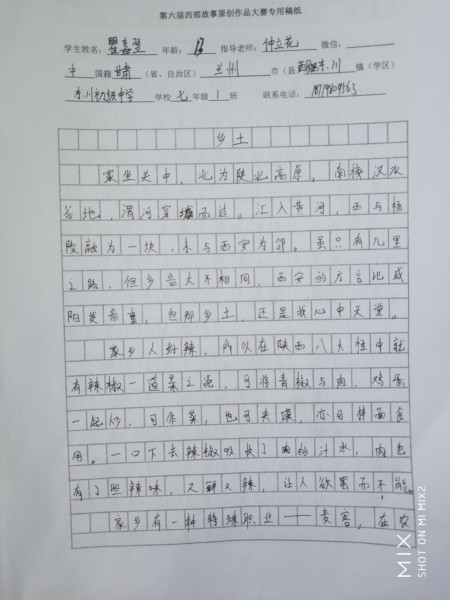 第六届西部故事原创作品大赛专用稿纸
学生姓名：瞿嘉翌 年龄：13 指导老师：仲立花 微信：
中 国籍 甘肃 （省、自治区） 兰州 市（县 西固区东川 镇（学区）
东川初级中学 学校 七 年级 1 班 联系电话：
乡土
家坐关中，北为陕北高原，南接汉水
谷地，渭河穿城而过。汇入黄河，西与杨
陵融为一块，东与西安为邻。虽只有几里
之路，但乡音大不相同，西安的方言比咸
阳发音重，但那乡土，还是我心中天堂。
家乡人好辣，所以在陕西八大怪中就
有辣椒一道菜之说，可将青椒与肉、鸡蛋
一起炒，可作菜，也可夹馍，亦可拌面食
用。一口下去辣椒吸收了肉的汁水，肉包
有了些辣味，又鲜又辣，让人欲罢而不能。
家乡有一种特殊职业——麦客，在农
MIX
SHOT ON MI MIX2